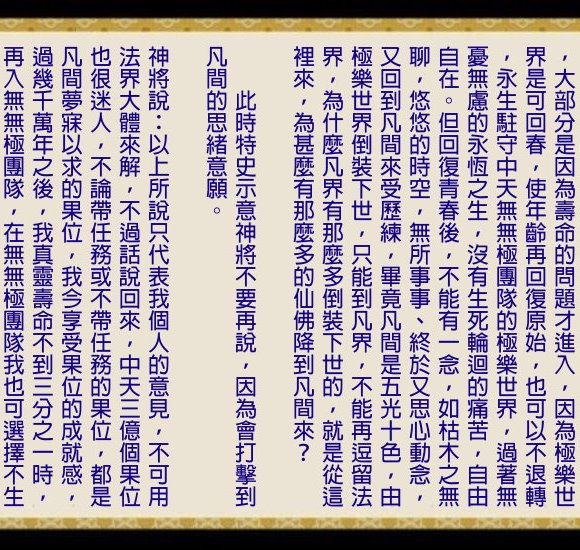 ，大部分是因為壽命的問題才進入，因為極樂世
界是可回春，使年齡再回復原始，也可以不退轉
，永生駐守中天無無極團隊的極樂世界，過著無
憂無慮的永恆之生，沒有生死輪迴的痛苦，自由
自在。但回復青春後，不能有一念，如枯木之無
聊，悠悠的時空，無所事事、終於又思心動念，
又回到凡間來受歷練，畢竟凡間是五光十色，由
極樂世界倒裝下世，只能到凡界，不能再逗留法
界，為什麼凡界有那麼多倒裝下世的，就是從這
裡來，為甚麼有那麼多的仙佛降到凡間來？
此時特史示意神將不要再說，因為會打擊到
凡間的思緒意願。
神將說：以上所說只代表我個人的意見，不可用
法界大體來解，不過話說回來，中天三億個果位
也很迷人，不論帶任務或不帶任務的果位，都是
凡間夢寐以求的果位，我今享受果位的成就感，
過幾千萬年之後，我真靈壽命不到三分之一時，
再入無無極團隊，在無無極團隊我也可選擇不生